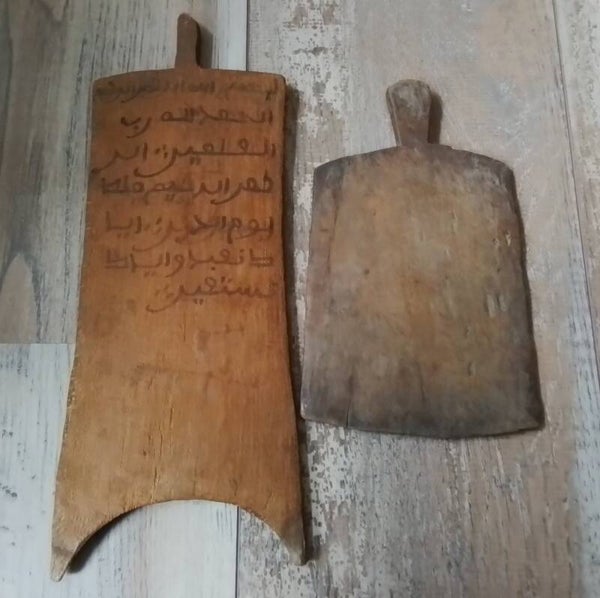 بسم الله الرحمن
الحمد لله رب
العلمين الر
حمن الرحيم ملك
يوم الدين ايا
ك نعبد واياك
نستعين